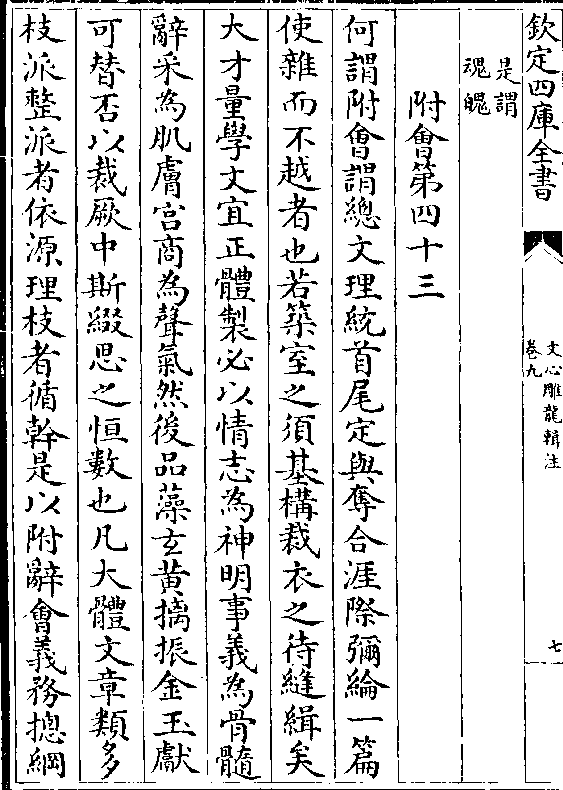 欽定四庫全書
文心雕龍輯注
卷九
七
是謂
魂魄
附會第四十三
何謂附會謂總文理統首尾定與奪合涯際彌綸一篇
使雜而不越者也若築室之須基構裁衣之待縫緝矣
大才量學文宜正體製必以情志為神明事義為骨髓
辭采為肌膚宮商為聲氣然後品藻玄黃摛振金玉獻
可替否以裁厥中斯綴思之恒數也凡大體文章類多
枝派整派者依源理枝者循幹是以附辭會義務摠綱